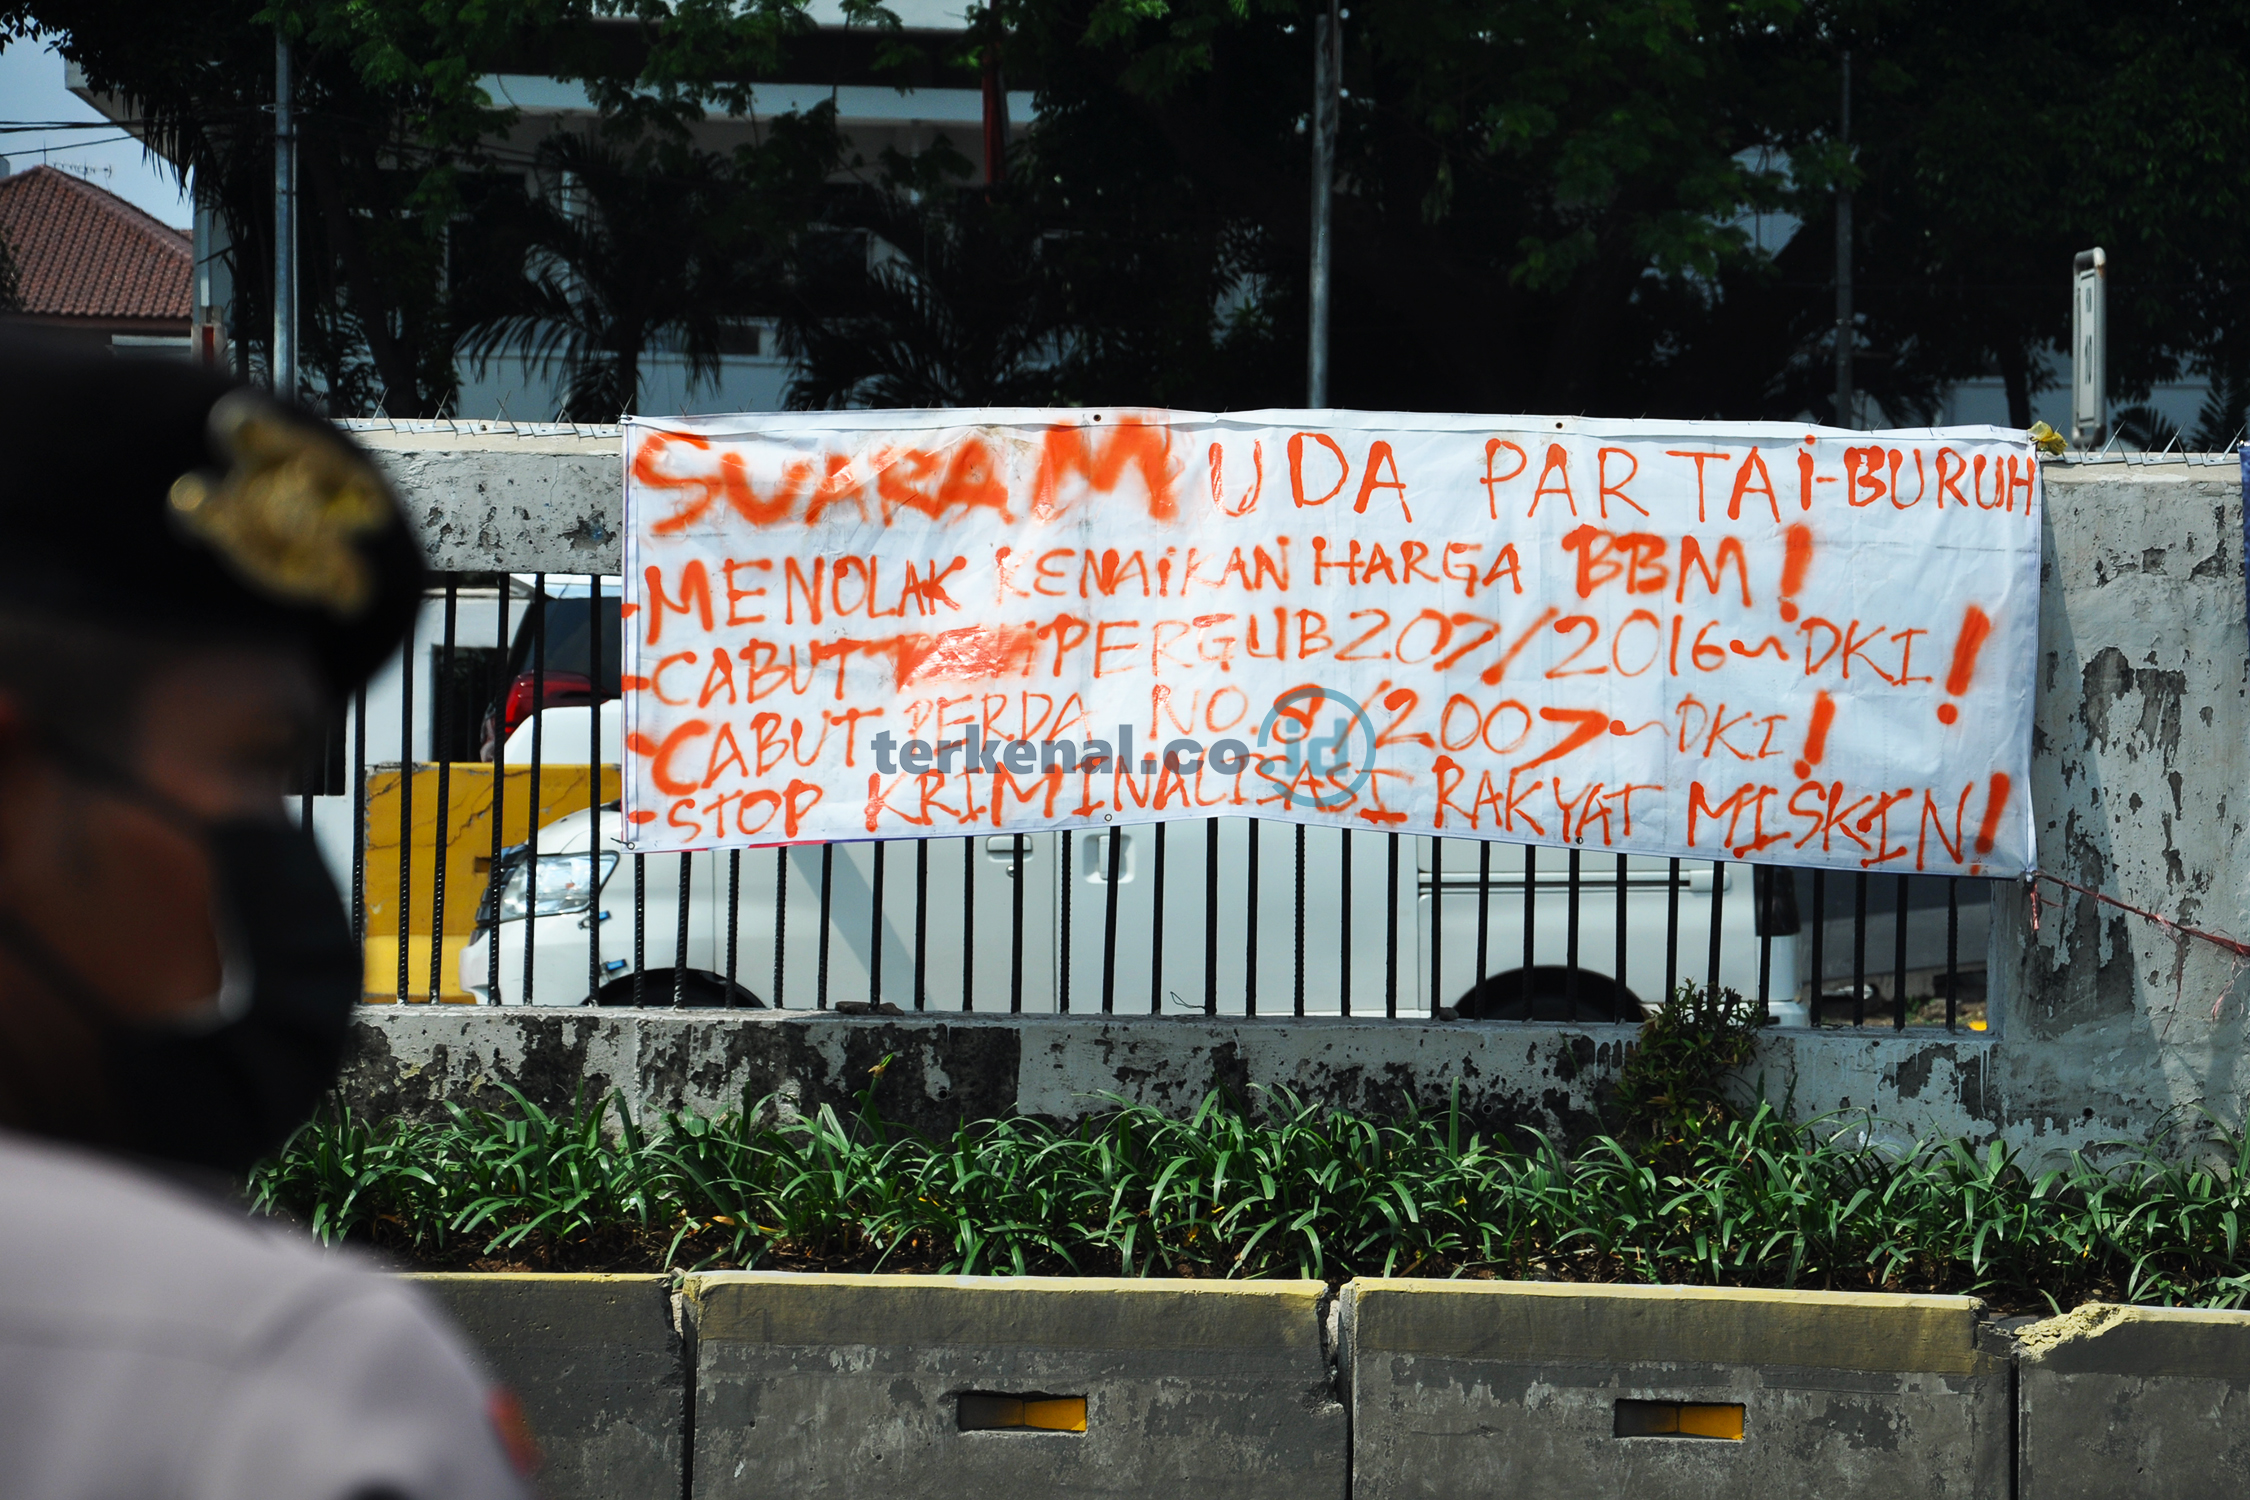 SUARA MUDA PARTAI-BURUH
-MENOLAK KENAIKAN HARGA BBM!
-CABUT PERGUB 207/2016~DKI!
-CABUT PERDA NO.8/2007~DKI!
-STOP KRIMINALISASI RAKYAT MISKIN!
terkenal.co.id